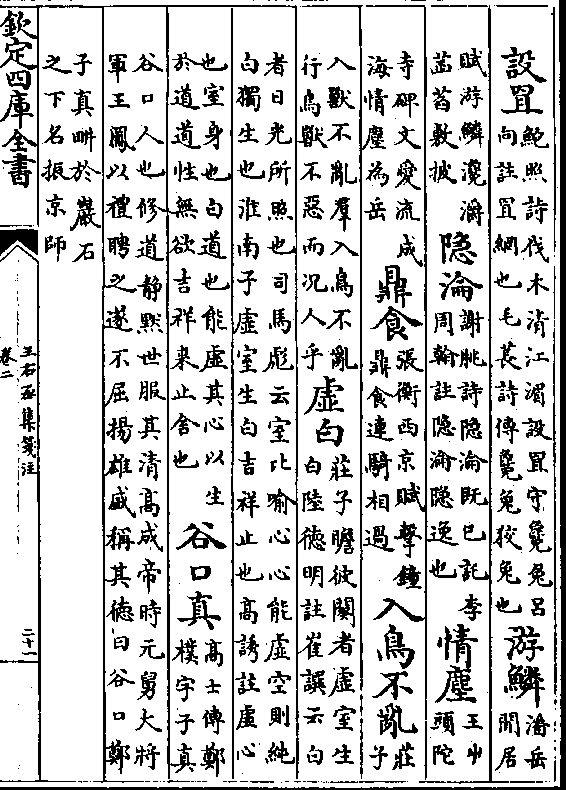 設罝鮑照詩伐木清江湄設罝守毚兔呂
向註罝網也毛萇詩傳毚兔狡兔也游鱗潘岳
閒居
賦游鱗瀺灂
菡萏敷披隐淪謝朓詩隐淪既已託李
周翰註隐淪隐逸也情塵王屮
頭陀
寺碑文愛流成
海情塵為岳鼎食張衡西京賦擊鐘
鼎食連騎相過入鳥不亂莊
子
入獸不亂羣入鳥不亂
行鳥獸不惡而况人乎虛白莊子瞻彼闋者虛室生
白陸徳明註崔譔云白
者日光所照也司馬彪云室比喻心心能虛空則純
白獨生也淮南子虛室生白吉祥止也高誘註虛心
也室身也白道也能虛其心以生
於道道性無欲吉祥来止舍也谷口真髙士傳鄭
樸字子真
谷口人也修道静黙世服其清髙成帝時元舅大將
軍王鳳以禮聘之遂不屈揚雄盛稱其徳曰谷口鄭
子真耕於巖石
之下名振京師
欽定四庫全書
王右丞集箋注
卷二
二十一